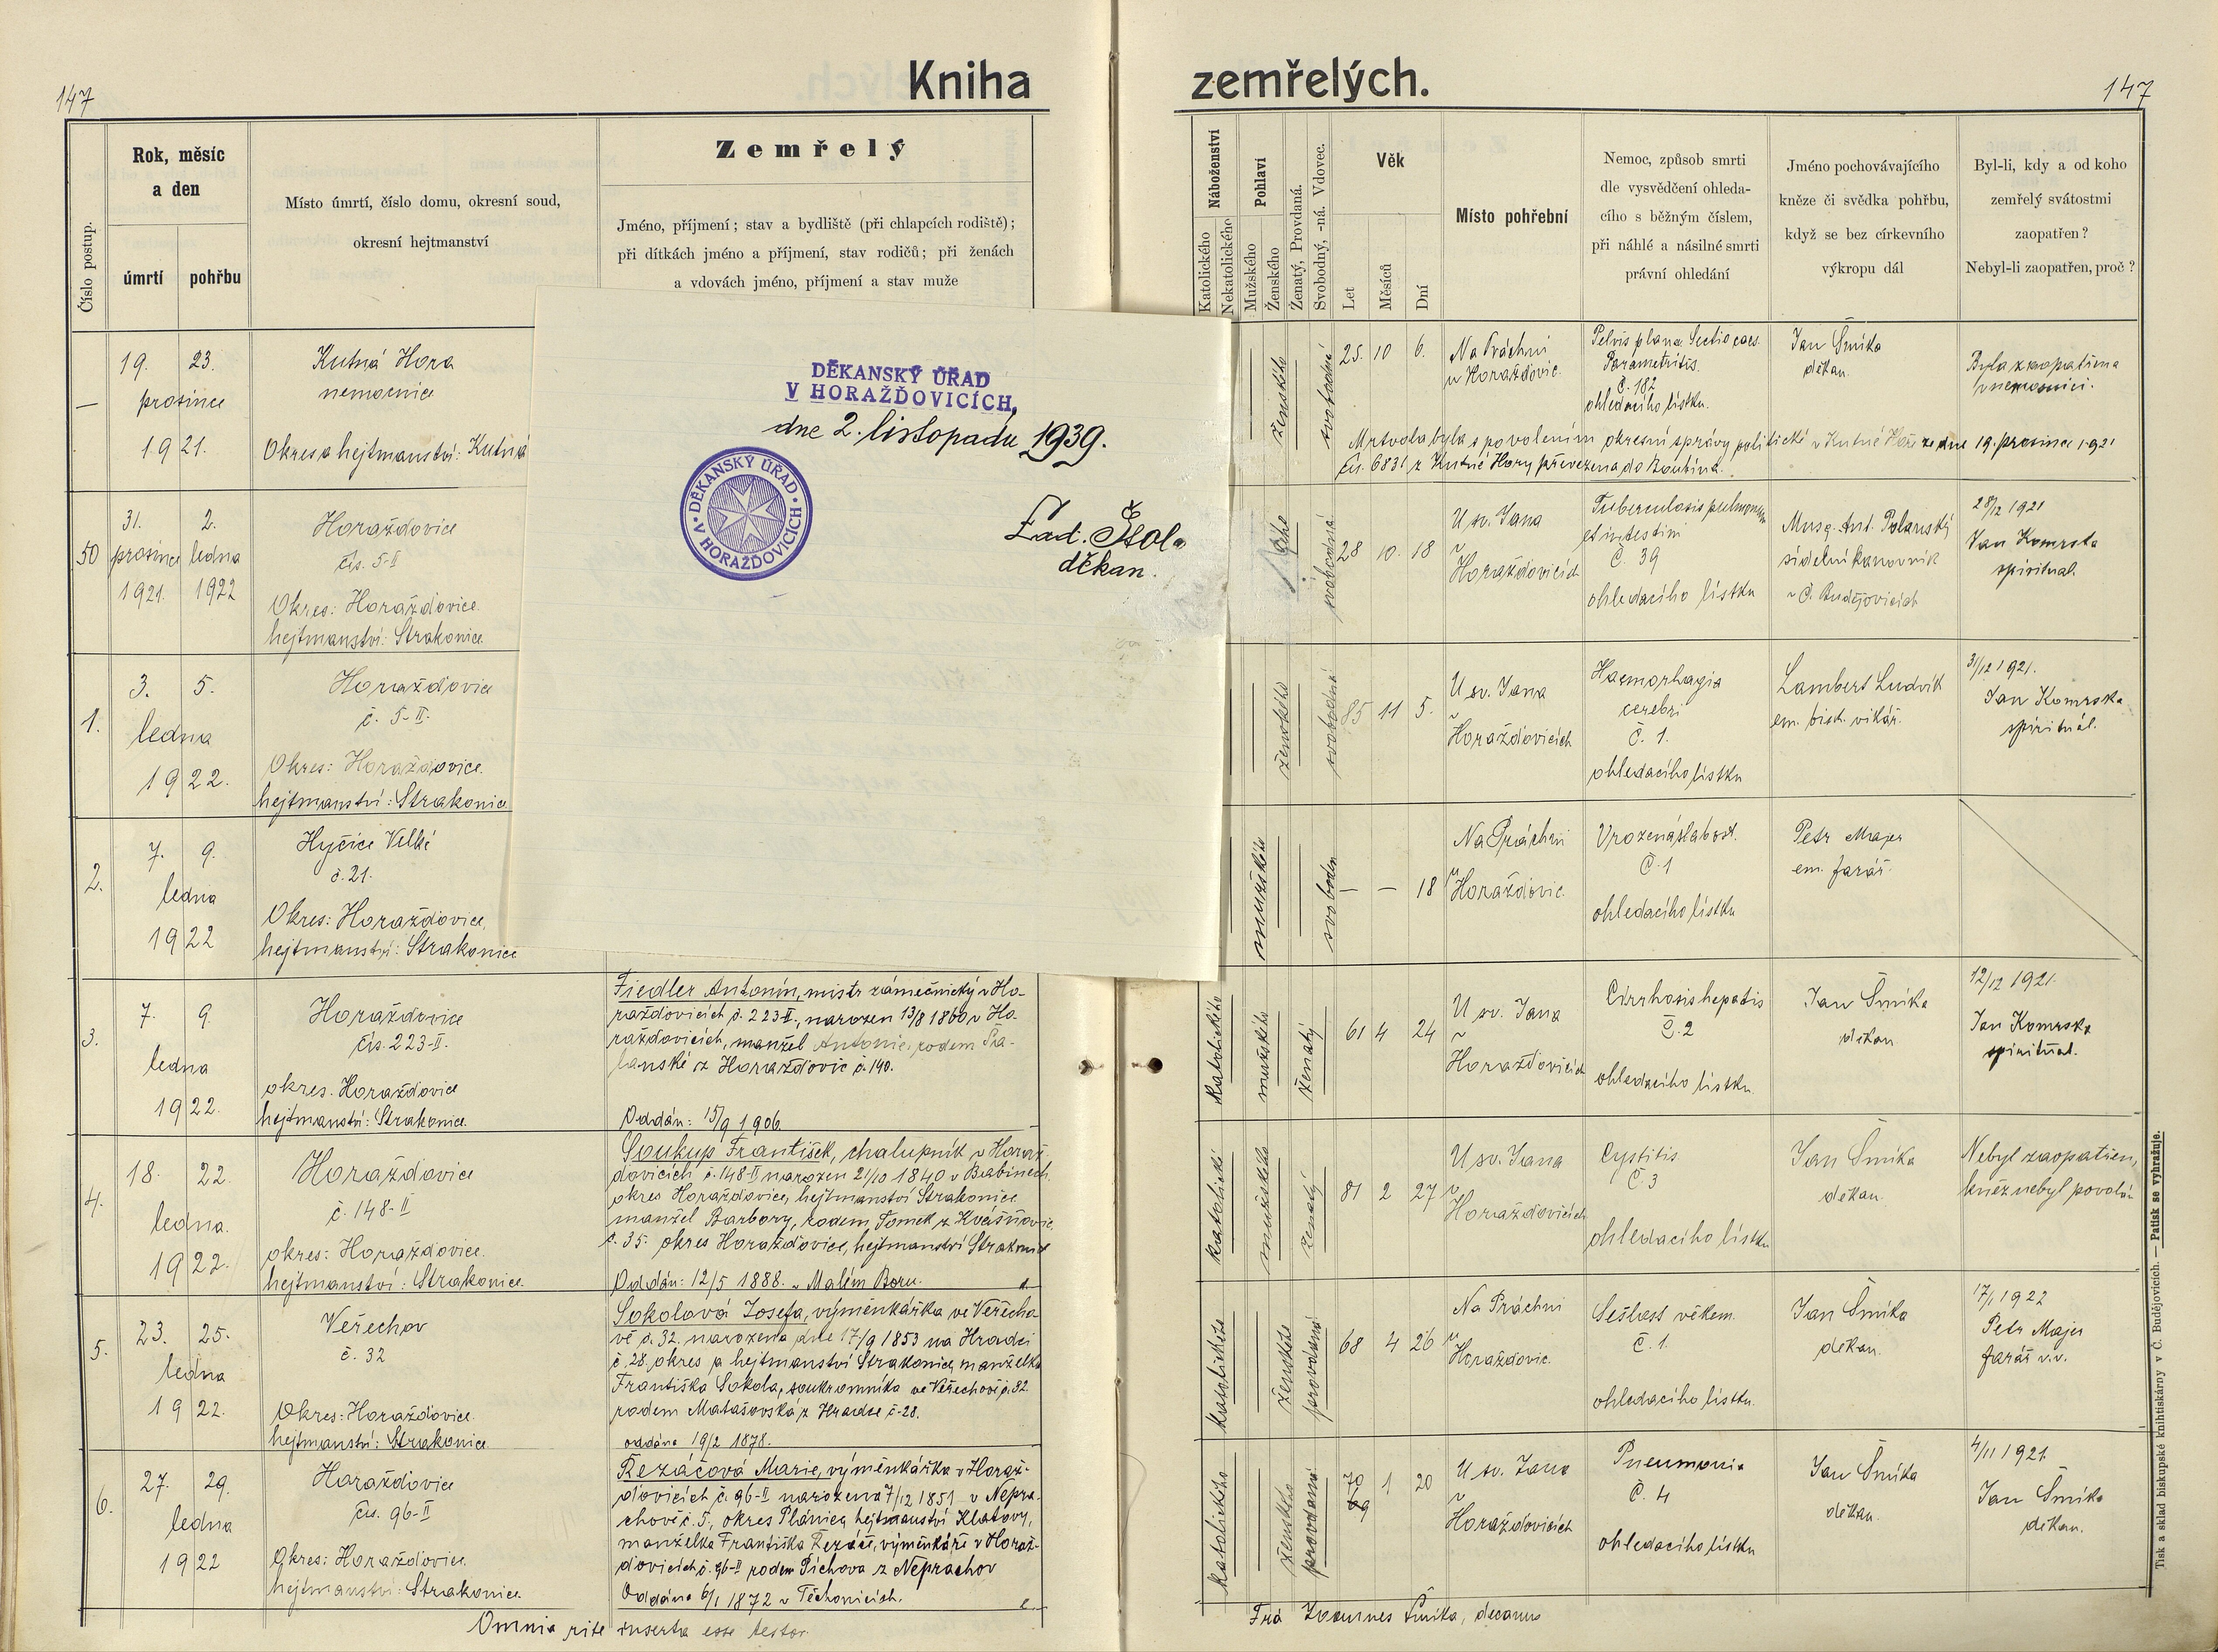 147
Kniha zemřelých.
147
Číslo postup.
Rok, měsíc
a den
úmrtí
pohřbu
Místo úmrtí, číslo domu, okresní soud,
okresní hejtmanství
Zemřelý
Jméno, příjmení; stav a bydliště (při chlapcích rodiště);
při dítkách jméno a příjmení, stav rodičů; při ženách
a vdovách jméno, příjmení a stav muže
Náboženství
Katolického
Nekatolického
Pohlaví
Mužského
Ženského
Ženatý, Provdaná.
Svobodný, -ná. Vdovec.
Věk
Let
Měsíců
Dní
Místo pohřební
Nemoc, způsob smrti
dle vysvědčení ohleda-
cího s běžným číslem,
při náhlé a násilné smrti
právní ohledání
Jméno pochovávajícího
kněze či svědka pohřbu,
když se bez církevního
výkropu dál
Byl-li, kdy a od koho
zemřelý svátostmi
zaopatřen?
Nebyl-li zaopatřen, proč?
—
19. 23.
prosince
1921.
Kutná Hora
nemocnice
Okres a hejtmanství: Kutná
ženského
svobodná
25. 10 6.
Na Práchni
u Horažďovic.
Pelvis plana. Sectio caes.
Parametritis.
Č. 182
ohledacího lístku.
Jan Šmíka
děkan.
Byla zaopatřena
v nemocnici.
Mrtvola byla s povolením okresní správy politické v Kutné Hoře ze dne 19. prosince 1921
čís. 6831 z Kutné Hory převezena do
50
31. 2.
prosince ledna
1921. 1922
Horažďovice
čís. 5-II
Okres: Horažďovice.
hejtmanství: Strakonice.
svobodná
28 10. 18
U sv. Jana
v
Horažďovicích
Tuberculosis pulmonum
et intestini
Č. 39
ohledacího lístku
Msg. Ant. Polanský
sídelní kanovník
v Č. Budějovicích
28/12 1921
Jan Komrska
spirituál.
1.
3. 5.
ledna
1922.
Horažďovice
č. 5-II.
Okres: Horažďovice.
hejtmanství: Strakonice
ženského
svobodná
85 11 5.
U sv. Jana
v
Horažďovicích
Haemorhagia
cerebri
Č. 1.
ohledacího lístku
Lambert Ludvík
em. bisk. vikář.
31/12 1921.
Jan Komrska
spirituál.
2.
7. 9.
ledna
1922
Hyčice Velké
č. 21.
Okres: Horažďovice,
hejtmanství: Strakonice
mužského
svoboden
— — 18
Na Práchni
u
Horažďovic.
Vrozená slabost.
Č. 1
ohledacího lístku
Petr Majer
em. farář.
DĚKANSKÝ ÚŘAD
V HORAŽĎOVICÍCH,
dne 2. listopadu 1939.
DĚKANSKÝ ÚŘAD
V HORAŽĎOVICÍCH
děkan.
3.
7. 9.
ledna
1922.
Horažďovice
čís. 223-II.
okres. Horažďovice
hejtmanství: Strakonice.
Fiedler Antonín, mistr zámečnický v Ho-
ražďovicích č. 223-II., narozen 13/8 1860 v Ho-
ražďovicích, manžel Antonie, rodem
z Horažďovic č. 140.
Oddán: 15/9 1906.
katolického
mužského
ženatý
61 4 24
U sv. Jana
v
Horažďovicích
Cirrhosis hepatis
Č. 2
ohledacího lístku
Jan Šmíka
děkan
12/12 1921.
Jan Komrska
spirituál.
4.
18. 22.
ledna.
1922.
Horažďovice
č. 148-II
okres: Horažďovice.
hejtmanství: Strakonice.
Soukup František, chalupník v Horaž-
dovicích č. 148-II narozen 21/10 1840 v Babinech
okres Horažďovice, hejtmanství Strakonice
manžel Barbory, rodem Tomek z Kvášňovic
č. 35. okres Horažďovice, hejtmanství Strakonice
Oddán: 12/5 1888. v Malém Boru.
katolické
mužského
ženatý
81 2 27
U sv. Jana
v
Horažďovicích
Cystitis
Č. 3
ohledacího lístku
Jan Šmíka
děkan.
Nebyl zaopatřen,
kněz nebyl povolán
5.
23. 25.
ledna
1922.
Veřechov
č. 32
Okres: Horažďovice.
hejtmanství: Strakonice.
Sokolová Josefa, výměnkářka ve Veřecho-
vě č. 32, narozena dne 17/9 1853 na Hradci
č. 28, okres a hejtmanství Strakonice, manželka
Františka Sokola, soukromníka ve Veřechově č. 32
rodem Matašovská z Hradce č. 28.
oddána 19/2 1878.
katolického
ženského
provdaná
68 4 26
Na Práchni
u
Horažďovic.
Sešlost věkem.
Č. 1.
ohledacího lístku.
Jan Šmíka
děkan.
17/1 1922
Petr Majer
farář v.v.
6.
27. 29.
ledna
1922
Horažďovice
čís. 96-II
Okres: Horažďovice.
hejtmanství: Strakonice.
Řezáčová Marie, výměnkářka v Horaž-
ďovicích č. 96-II narozena 7/12 1851 v Nepra-
chově č. 5, okres Plánice, hejtmanství Klatovy,
manželka Františka Řezáče, výměnkáře v Horaž-
ďovicích č. 96-II rodem Píchova z Neprachov
Oddána 6/1 1872 v Těchonicích.
katolického
ženského
provdaná
70
69
1 20
U sv. Jana
v
Horažďovicích
Pneumonia
Č. 4
ohledacího lístku
Jan Šmíka
děkan.
4/11 1921.
Jan Šmíka
děkan.
Omnia rite inserta esse testor.
Joannes Šmíka, decanus
Tisk a sklad biskupské knihtiskárny v Č. Budějovicích. — Patisk se vyhražuje.